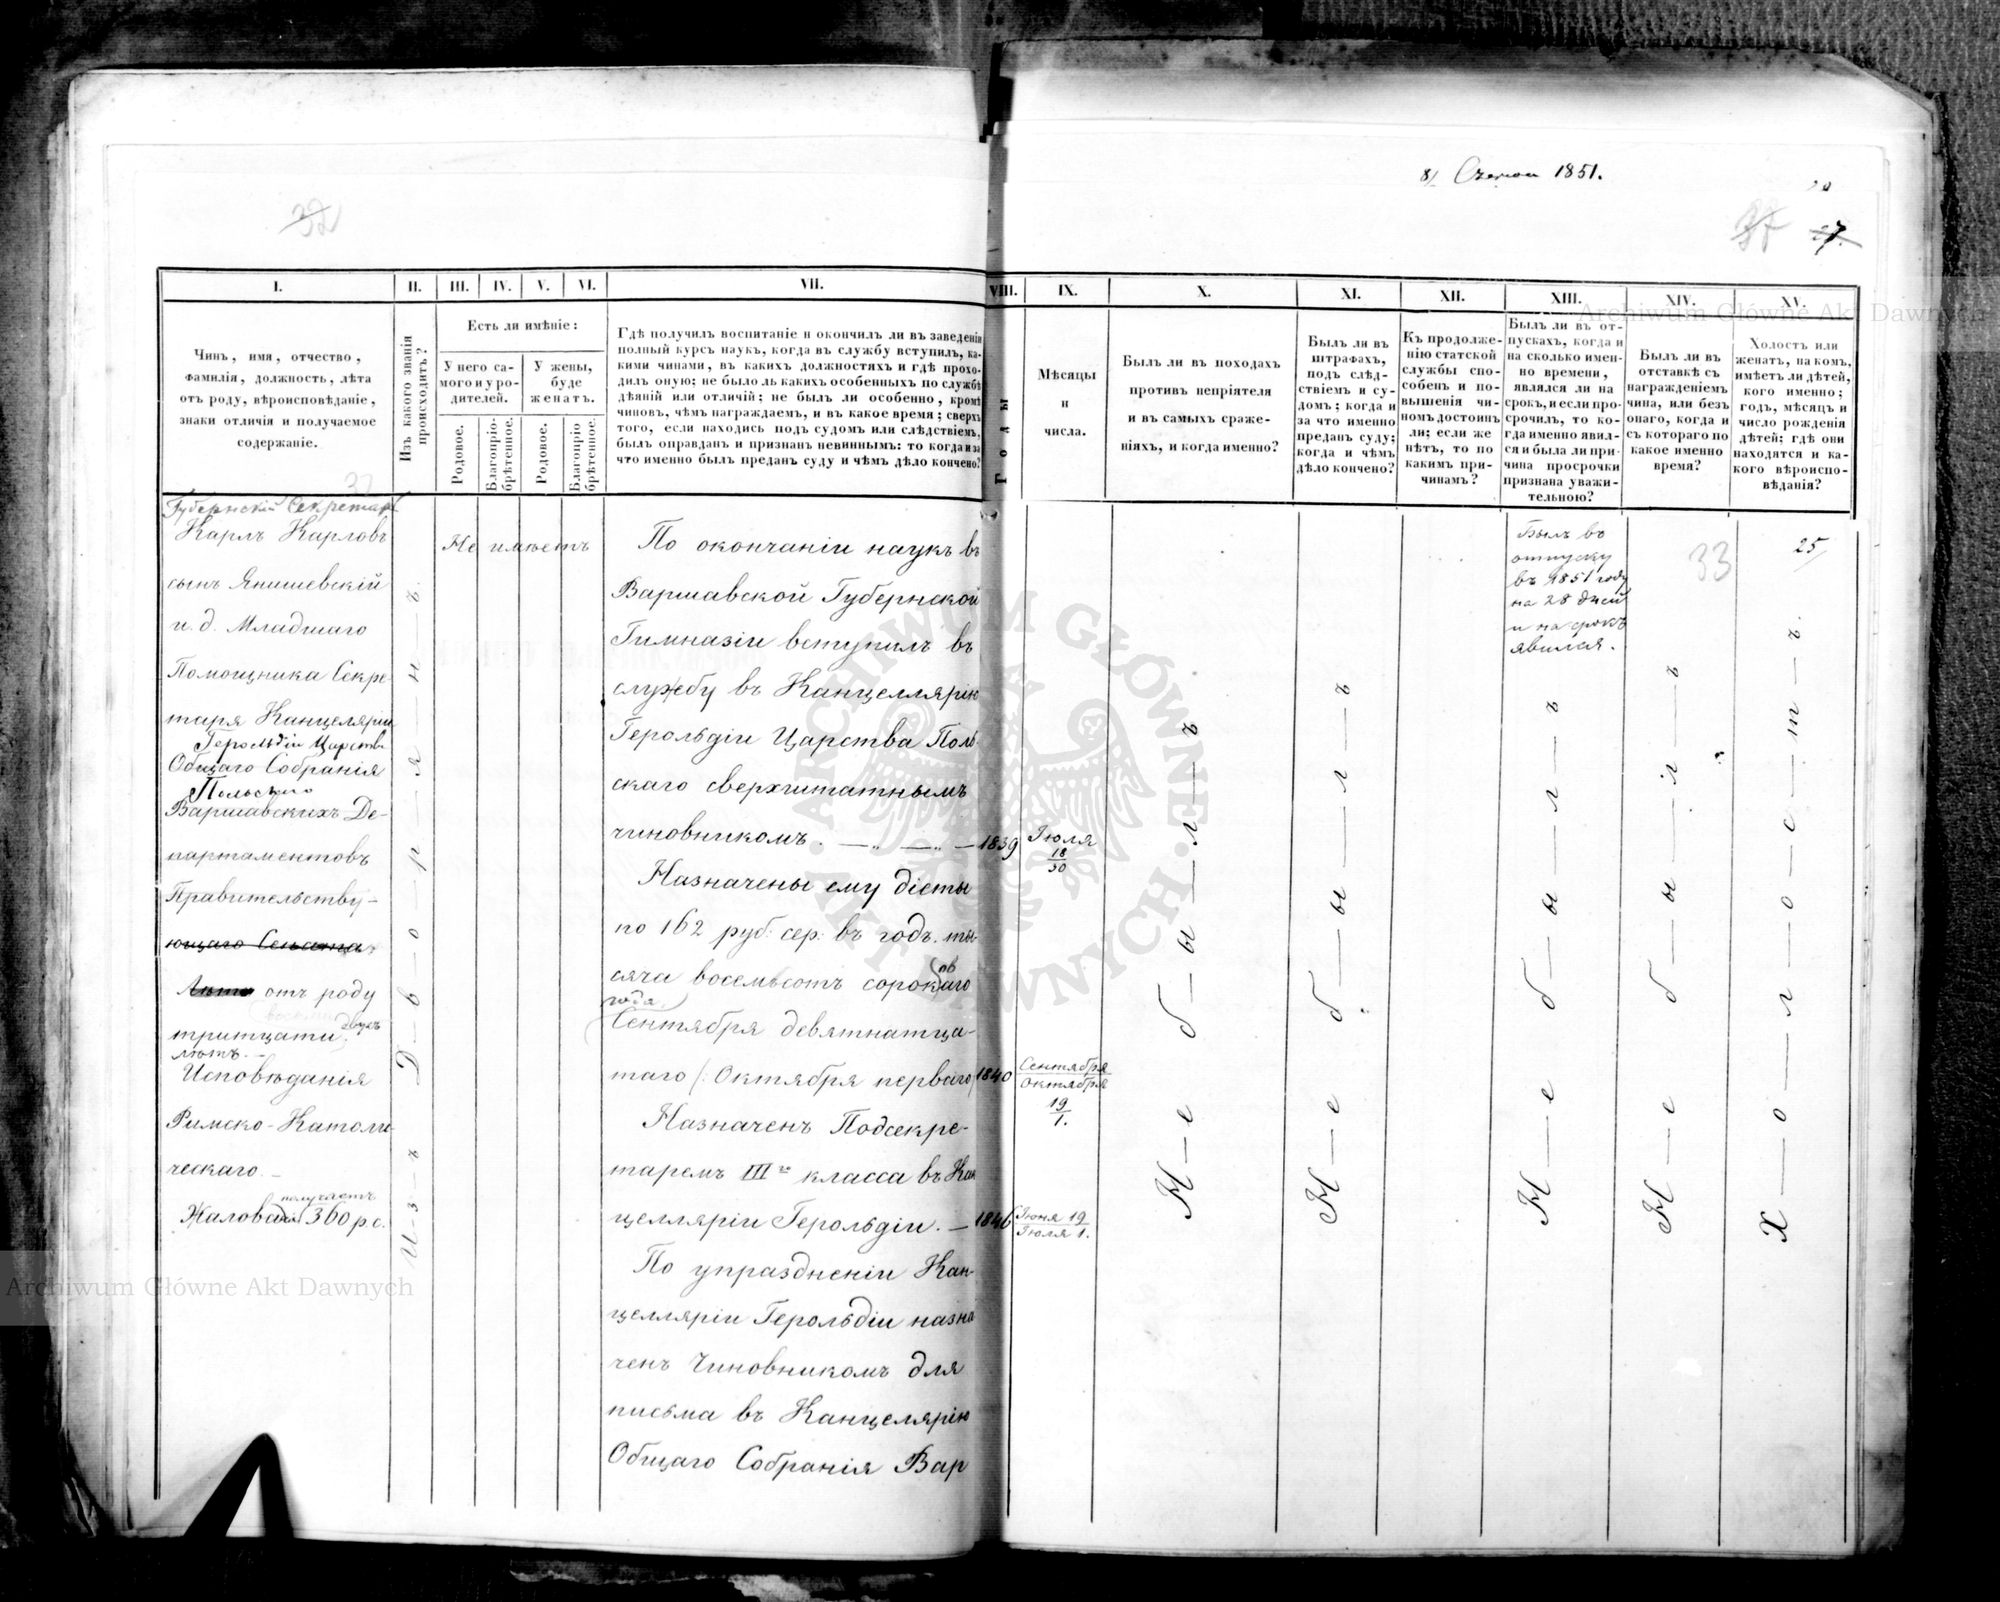 8/ Czerwca 1851.
32
27.
I.
II.
III.
IV.
V.
VI.
VII.
VIII.
IX.
X.
XI.
XII.
XIII.
XIV.
XV.
Чинъ, имя, отчество,
фамилія, должность, лѣта
отъ роду, вѣроисповѣданіе,
знаки отличія и получаемое
содержаніе.
Изъ какого званія
происходитъ?
Есть ли имѣніе:
У него са-
могои у ро-
дителей.
У жены,
буде
женатъ.
Родовое.
Благопріо-
брѣтенное.
Родовое.
Благопріо
брѣтенное.
Гдѣ получилъ воспитаніе и окончилъ ли въ заведеніи
полный курсъ наукъ, когда въ службу вступилъ, ка-
кими чинами, въ какихъ должностяхъ и гдѣ прохо-
дилъ оную; не было ль какихъ особенныхъ по службѣ
дѣяній или отличій; не былъ ли особенно, кромѣ
чиновъ, чѣмъ награждаемъ, и въ какое время; сверхъ
того, если находись подъ судомъ или слѣдствіемъ,
былъ оправданъ и признанъ невиннымъ: то когда и за
что именно былъ преданъ суду и чѣмъ дѣло кончено?
Годы
Мѣсяцы
и
числа.
Былъ ли въ походахъ
противъ непріятеля
и въ самыхъ сраже-
ніяхъ, и когда именно?
Былъ ли въ
штрафахъ,
подъ слѣд-
ствіемъ и су-
домъ; когда и
за что именно
преданъ суду;
когда и чѣмъ
дѣло кончено?
Къ продолже-
нію статской
службы спо-
собенъ и по-
вышенія чи-
номъ достоинъ
ли; если же
нѣтъ, то по
какимъ при-
чинамъ?
Былъ ли въ от-
пускахъ, когда и
на сколько имен-
но времени,
явился ли на
срокъ, и если про-
срочилъ, то ко-
гда именно явил-
ся и была ли при-
чина просрочки
признана уважи-
тельною?
Былъ ли въ
отставкѣ съ
награжденіемъ
чина, или безъ
онаго, когда и
съ котораго по
какое именно
время?
Холостъ или
женатъ, на комъ,
имѣетъ ли дѣтей,
кого именно;
годъ, мѣсяцъ и
число рожденія
дѣтей; гдѣ они
находятся и ка-
кого вѣроиспо-
вѣданія?
32
Губернскій Секретарь
Карлъ Карловъ
сынъ Янишевскій
и. д. Младшаго
Помощника Секре-
таря Канцеляріи
Герольдіи Царства
Общаго Собранія
Польскаго
Варшавскихъ Де-
партаментовъ
Правительству-
ющаго Сената
Лѣта отъ роду
тритцати двухъ
лѣтъ. —
Исповѣданія
Римско-Католи-
ческаго. —
получаетъ
Жалованія 360 р. с.
И-з-ъ Д-в-о-р-я-н-ъ.
Не имѣетъ
По окончаніи наукъ въ
Варшавской Губернской
Гимназіи вступилъ въ
службу въ Канцеллярію
Герольдіи Царства Поль-
скаго сверхштатнымъ
чиновникомъ. — „ — „ —
1839
Іюля
18
30
Назначены ему діеты
по 162 руб: сер: въ годъ. ты-
сяча восемьсотъ сороковаго
года
Сентября девятнатца-
таго /: Октября перваго
1840
Сентября
Октября
19
1.
Назначенъ Подсекре-
таремъ III го класса въ Кан
целляріи Герольдіи. —
1846
Іюня 19
Іюля 1.
По упраздненіи Кан-
целляріи Герольдіи назна
ченъ Чиновникомъ для
письма въ Канцелярію
Общаго Собранія Вар
Н—е б—ы—л—ъ
Н—е б—ы—л—ъ
Былъ въ
отпуску
въ 1851 году
на 28 дней
и на срокъ
явился.
Н—е б—ы—л—ъ
33
Н—е б—ы—л—ъ
25/
Х—о—л—о—с—т—ъ.
ARCHIWUM GŁÓWNE AKT DAWNYCH
Archiwum Główne Akt Dawnych
Archiwum Główne Akt Dawnych